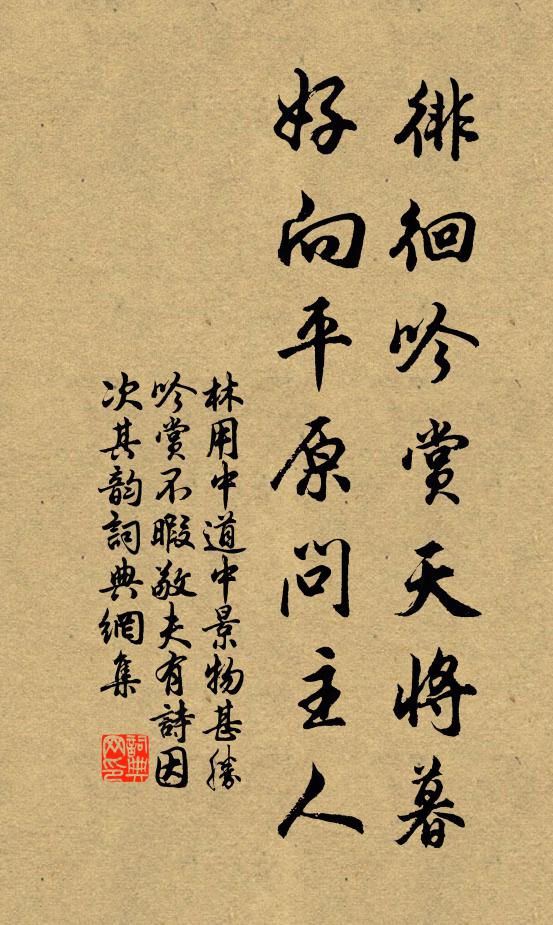 徘徊吟賞天將暮
好向平原問主人
林用中道中景物甚勝
吟賞不暇敬夫有詩因
次其韵詞典網集
詞典網印